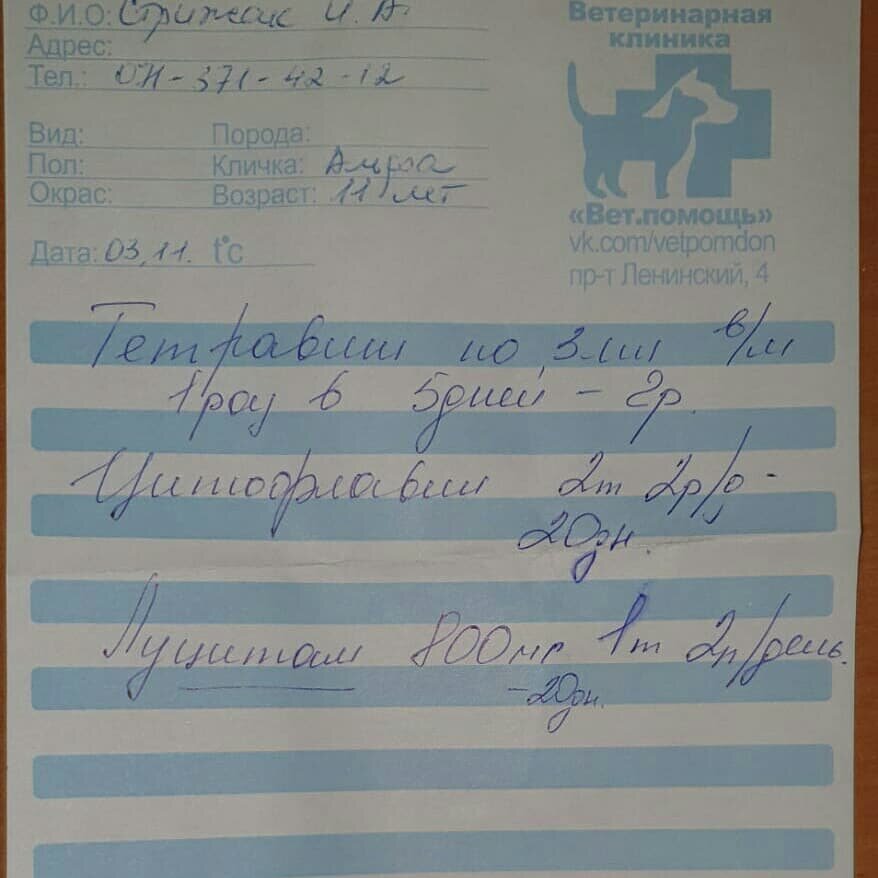 Ф.И.О: Стрижак И. А.
Адрес:
Тел.: 071-371-42-12
Вид: Порода:
Пол: Кличка:
Окрас: Возраст: 11 лет
Дата: 03.11. t°c
Ветеринарная
клиника
«Вет.помощь»
vk.com/vetpomdon
пр-т Ленинский, 4
Тетравит по 3 мл в/м
1 раз в 5 дней - 2р.
Цитофлавин 2т 2р/д -
20дн.
Луцетам 800мг 1т 2р/день.
-20дн.